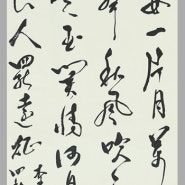 安一片月萬
聲秋風吹
是玉關情何日
人罷遠征